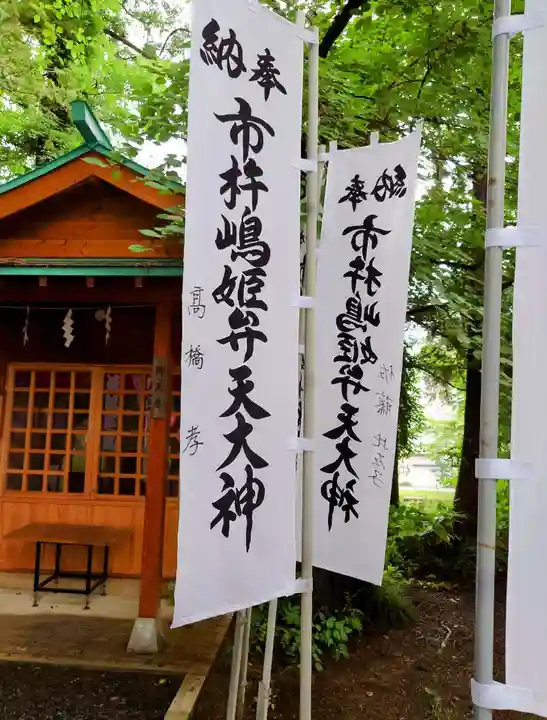 奉納
市杵嶋姫弁天大神
髙橋孝
奉納
市杵嶋姫弁天大神
佐藤比左子